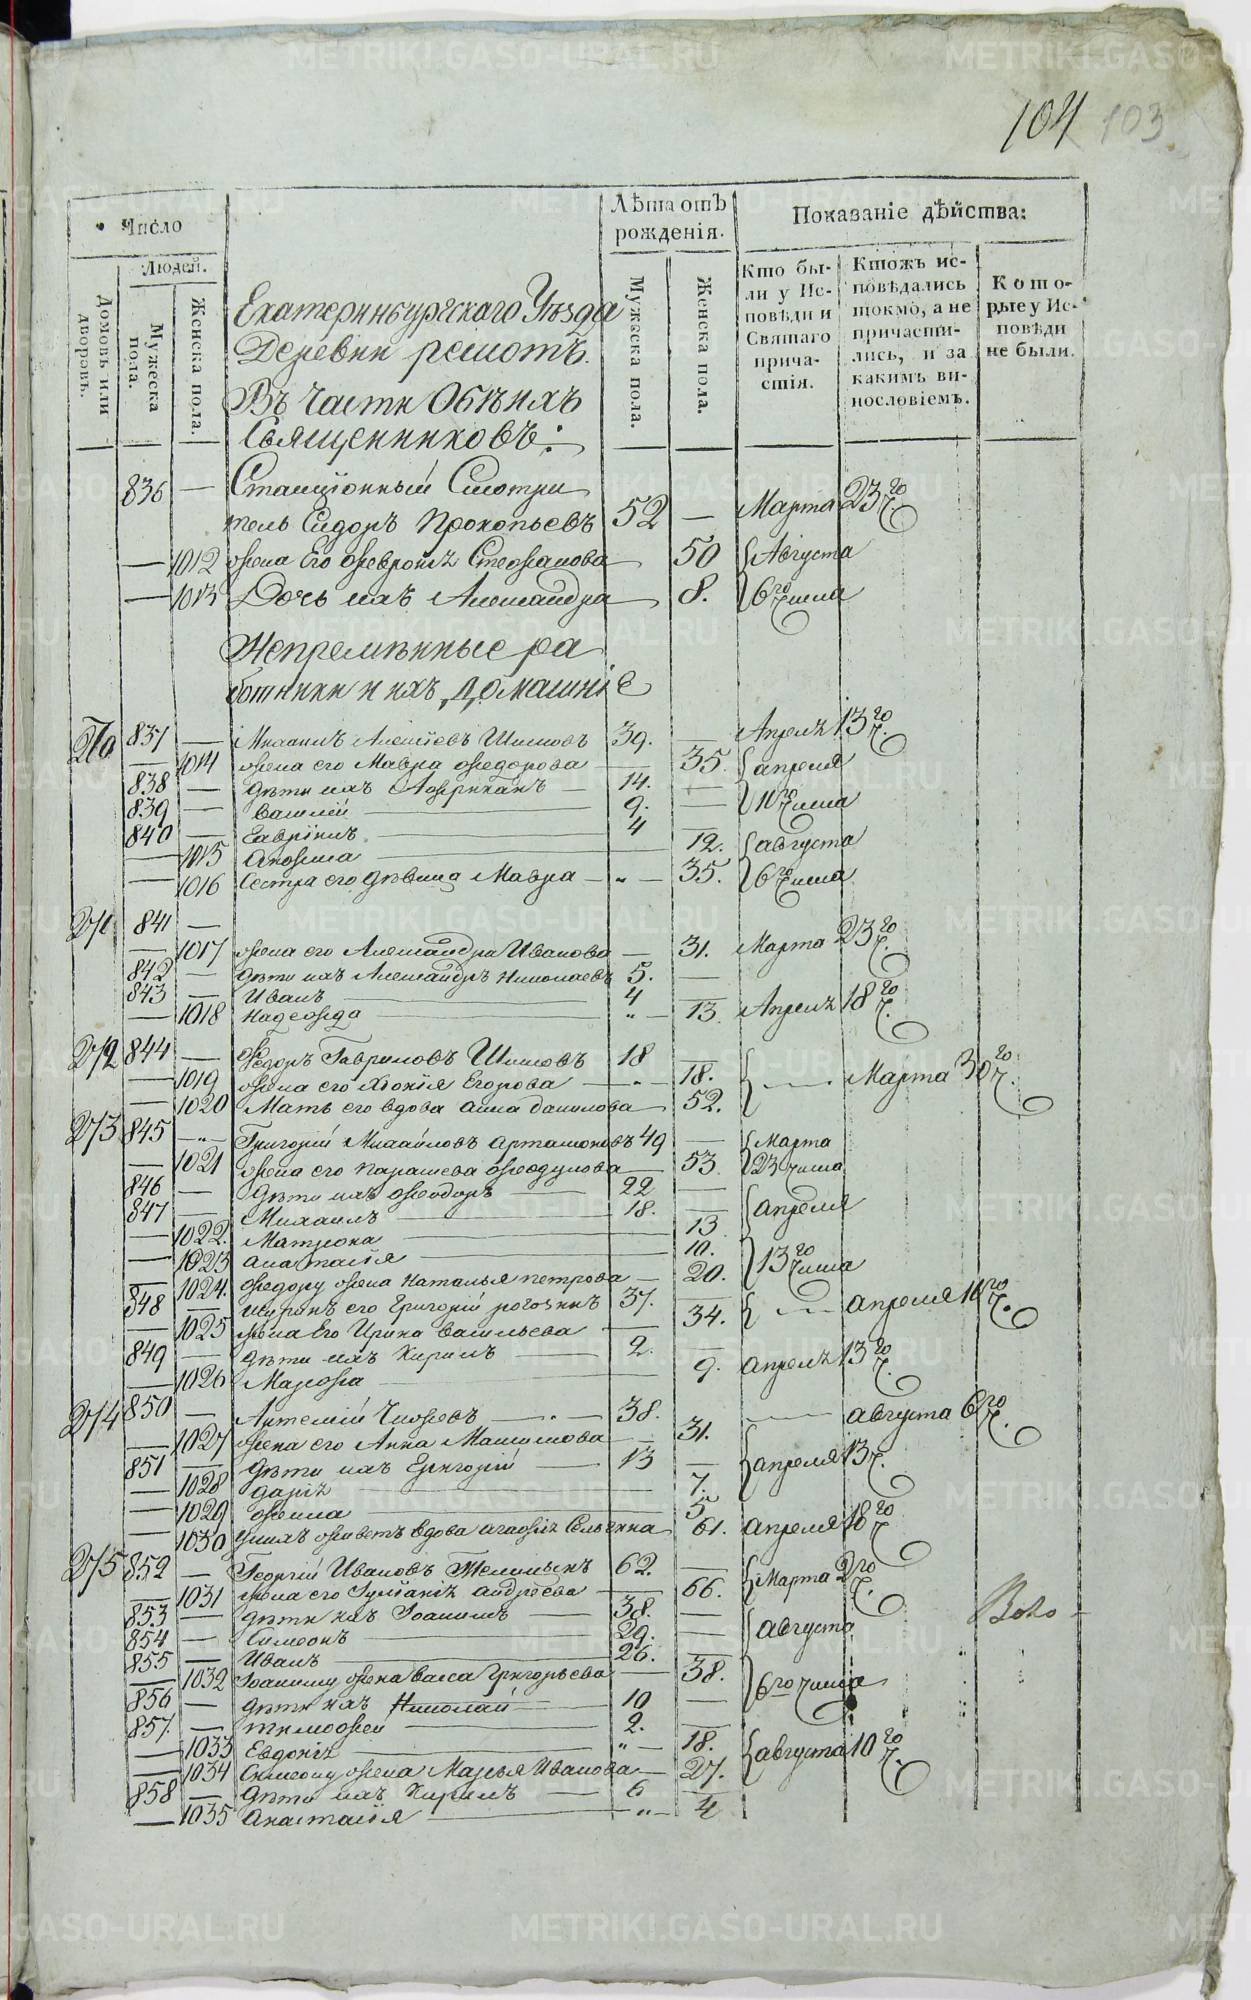 104 103
Число
Людей.
Домовъ или дворовъ.
Мужеска пола.
Женска пола.
Лѣта отъ рожденія.
Мужеска пола.
Женска пола.
Показаніе дѣйства:
Кто бы-
ли у Ис-
повѣди и
Святаго
прича-
стія.
Ктожъ ис-
повѣдались
токмо, а не
причасти-
лись, и за
какимъ ви-
нословіемъ.
Кото-
рые у Ис-
повѣди
не были.
Екатеринбургскаго Уѣзда
Деревни решотъ.
Въ Части Обѣихъ
Священниковъ:
836 — Станціонный Смотри
тель Сидоръ Прокопьевъ 52 — Марта 23го ч.
— 1012 жена Его Февронія Стефанова 50 Августа
— 1013 Дочь ихъ Александра — 8. 6го числа
Непремѣнные ра
ботники и ихъ домашніе
270 837 — Михаилъ Алексіевъ Шиловъ 39. — Апрелъ 13го ч.
— 1014 жена его Мавра Федорова — 35. апреля
838 — дѣти ихъ Африканъ — 14. — 10го числа
839 — Василей — 9. —
840 — Гавріилъ — 4 —
— 1015 Анфиса — 12. августа
— 1016 Сестра его дѣвица Мавра — „ — 35. 6го числа
271 841 —
— 1017 жена его Александра Иванова — 31. Марта 23го ч.
842 — дѣти ихъ Александръ Николаевъ 5. —
843 — Иванъ — 4 —
— 1018 Надежда — „ — 13. Апрелъ 18го ч.
272 844 — Федоръ Гавриловъ Шиловъ 18 —
— 1019 жена его Хіонія Егорова — „ — 18. — Марта 30го ч.
— 1020 Мать его вдова Анна данилова — 52.
273 845 — „ — Григорій Михайловъ Артамоновъ 49 — Марта
— 1021 жена его Парасева Феодулова — 53. 23 числа
846 — дѣти ихъ Феодоръ — 22 —
847 — Михаилъ — 18. — апреля
— 1022. Матрона — 13
— 1023 Анастасія — 10. 13го числа
— 1024. Федору жена Наталья петрова — 20.
848 — Шуринъ его Григорій рогозинъ 37. — апреля 10го ч.
— 1025 жена Его Ирина Васильева — 34.
849 — дѣти ихъ Кирилъ — 2. —
— 1026 Марфа — 9. апрелъ 13го ч.
274 850 — Артемій — 38. — августа 6го ч.
— 1027 жена его Анна Максимова — 31.
851 — дѣти ихъ Григорій — 13 — апреля 13 ч.
— 1028 дарія — 7.
— 1029 — 5
— 1030 вдова 61. апреля 18го ч
275 852 — Георгій Ивановъ 62. — Марта 2го ч.
— 1031 жена его Андреева — 66.
853 — дѣти ихъ Іоакимъ — 38. —
854 — Симеонъ — 29. — августа
855 — Иванъ — 26.
— 1032 Іоакиму жена Васса Григорьева — 38. 6го числа
856 — дѣти ихъ Николай — 10 —
857. — тимофей — 2. —
— 1033 Евдокія — „ — 18. августа 10го ч.
— 1034 Симеону жена Марья Иванова — 27.
858 — дѣти ихъ Кирилъ — 6 —
— 1035 Анастасія — „ — 4